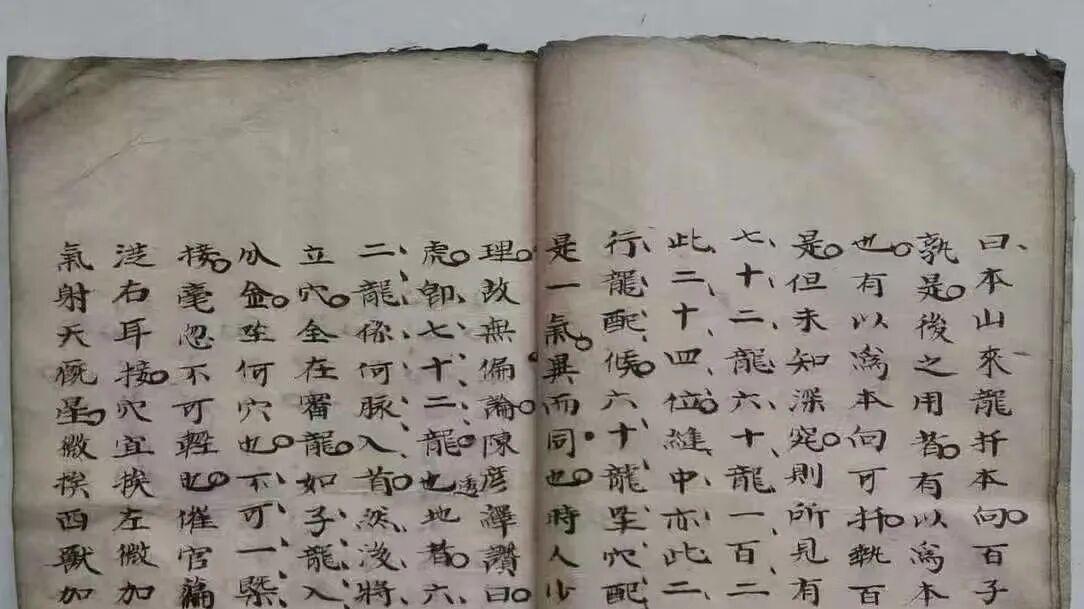 曰本山來龍扦本向百子
孰是後之用者有以為本
也有以為本向可扦執百
是但未知深究則所見有
七十二龍六十龍一百二
此二十四位縫中亦此二
行龍配候六十龍坐穴配
是一氣異而同也時人少
理故無偏論陳彥譯讚曰
虎卽七十二龍也透地者六
二龍係何脉入首然後將
立穴全在審龍如子龍入
分金坐何穴也不可一槩
接毫忽不可輕也催官篇
涉右耳接穴宜挨左微加
氣射天厩星微挨西獸加